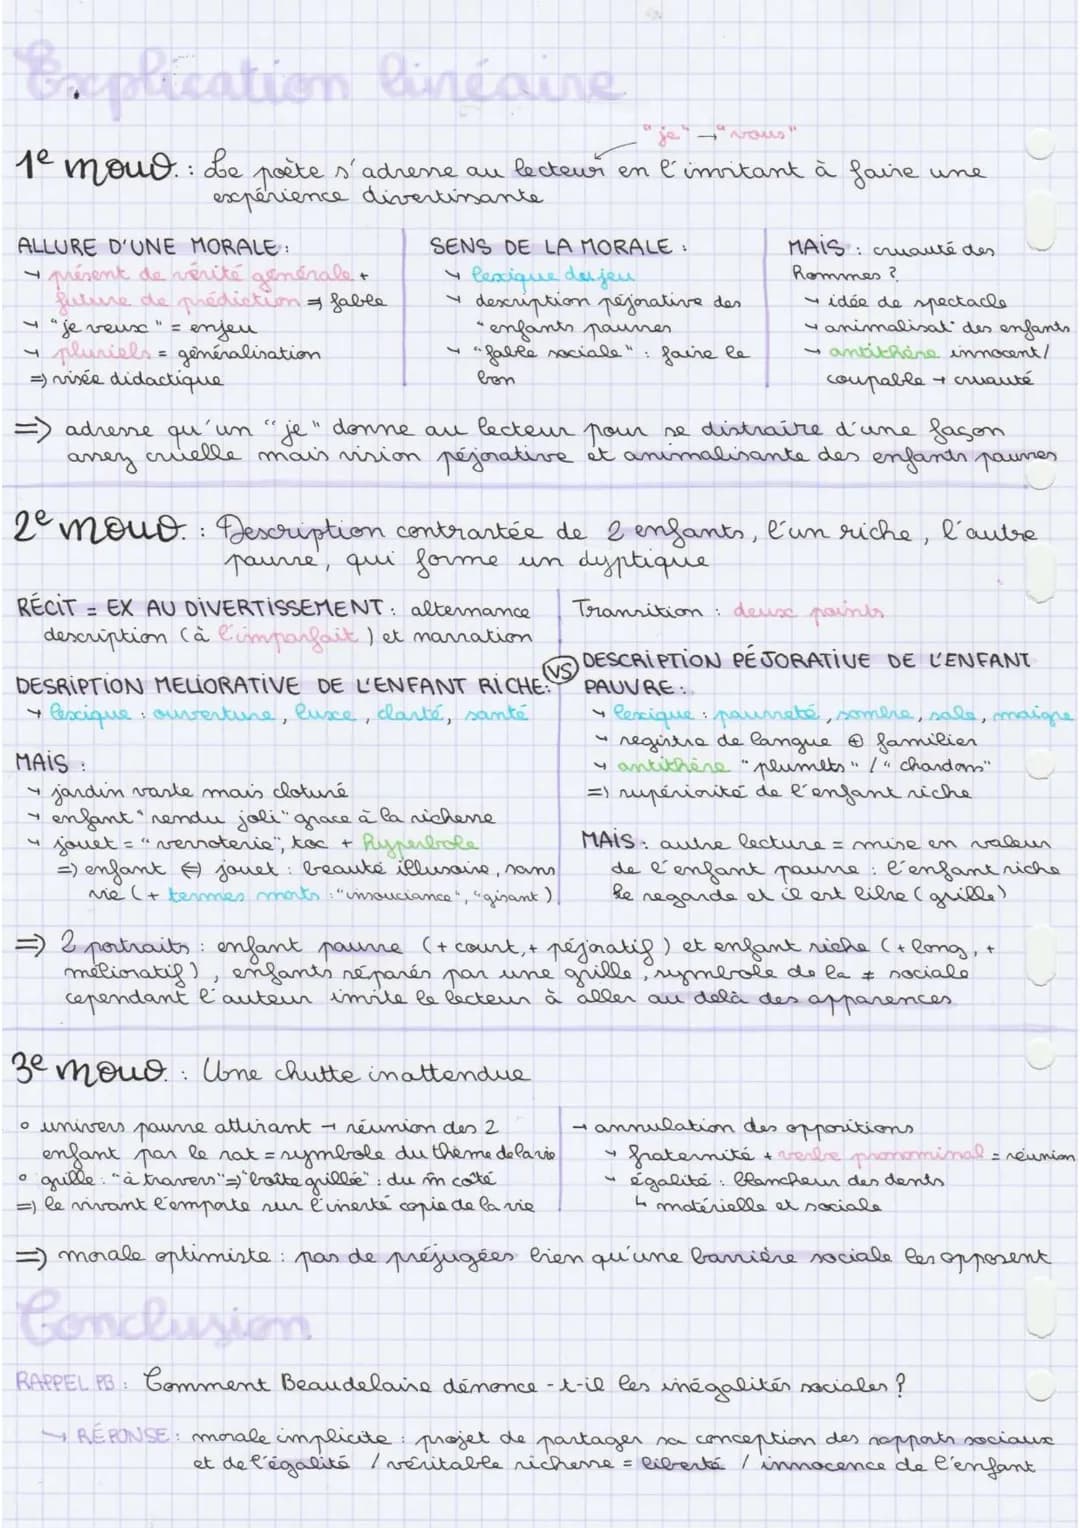 Explication linéaire
"je" → "vous"
1e mouv. : Le poète s'adresse au lecteur en l'invitant à faire une
expérience divertissante
ALLURE D'UNE MORALE :
→ présent de vérité générale +
future de prédiction ⇒ fable
→ "je veux" = enjeu
→ pluriels = généralisation
⇒ visée didactique
SENS DE LA MORALE :
→ lexique du jeu
→ description péjorative des
"enfants pauvres
→ "fable sociale" : faire le
bon
MAIS : cruauté des
Hommes ?
→ idée de spectacle
→ animalisat° des enfants
→ antithèse innocent/
coupable → cruauté
⇒ adresse qu'un "je" donne au lecteur pour se distraire d'une façon
assez cruelle mais vision péjorative et animalisante des enfants pauvres
2e mouv. : Description contrastée de 2 enfants, l'un riche, l'autre
pauvre, qui forme un dyptique
RÉCIT = EX AU DIVERTISSEMENT : alternance
description (à l'imparfait) et narration
DESRIPTION MELIORATIVE DE L'ENFANT RICHE:
→ lexique : ouverture, luxe, clarté, santé
MAIS :
→ jardin vaste mais cloturé
→ enfant "rendu joli" grace à la richesse
→ jouet = "verroterie", toc + hyperbole
⇒ enfant ⇔ jouet : beauté illusoire, sans
vie (+ termes morts : "insouciance", "gisant")
VS
Transition : deux points
DESCRIPTION PÉJORATIVE DE L'ENFANT
PAUVRE :
→ lexique : pauvreté, sombre, sale, maigre
→ registre de langue ⊕ familier
→ antithèse "plumets" / "chardons"
⇒ supériorité de l'enfant riche
MAIS : autre lecture = mise en valeur
de l'enfant pauvre : l'enfant riche
le regarde et il est libre (grille)
⇒ 2 portraits : enfant pauvre (+ court, + péjoratif) et enfant riche (+ long, +
mélioratif), enfants séparés par une grille, symbole de la ≠ sociale
cependant l'auteur invite le lecteur à aller au delà des apparences
3e mouv. : Une chutte inattendue
° univers pauvre attirant → réunion des 2
enfant par le rat = symbole du thème de la vie
° grille : "à travers" ⇒ "boîte grillée" : du m̂ côté
⇒ le vivant l'emporte sur l'inerté copie de la vie
→ annulation des oppositions
→ fraternité + verbe pronominal = réunion
→ égalité : blancheur des dents
↳ matérielle et sociale
⇒ morale optimiste : pas de préjugées bien qu'une barrière sociale les opposent
Conclusion
RAPPEL PB : Comment Beaudelaire dénonce-t-il les inégalités sociales ?
↳ RÉPONSE : morale implicite : projet de partager sa conception des rapports sociaux
et de l'égalité / véritable richesse = liberté / innocence de l'enfant